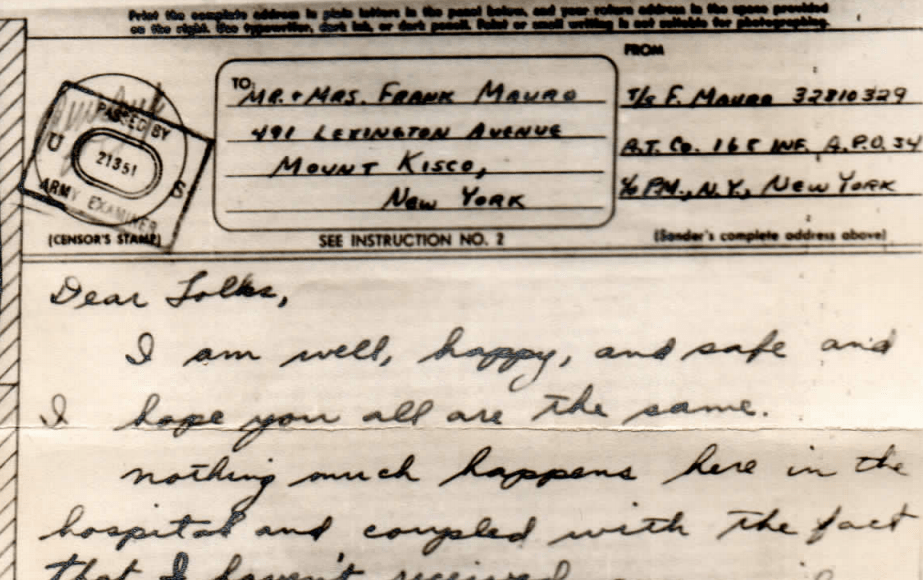 Print the complete address in plain letters in the panel below, and your return address in the space provided
on the right. Use typewriter, dark ink, or dark pencil. Faint or small writing is not suitable for photographing.
FROM
TO
MR. + MRS. FRANK MAURO
491 LEXINGTON AVENUE
MOUNT KISCO,
NEW YORK
T/5 F. MAURO 32810329
A.T. CO. 168 INF. A.P.O. 34
% P.M., N.Y., NEW YORK
PASSED BY
U S
21351
ARMY EXAMINER
(CENSOR'S STAMP)
SEE INSTRUCTION NO. 2
(Sender's complete address above)
Dear Folks,
I am well, happy, and safe and
I hope you all are the same.
nothing much happens here in the
hospital and coupled with the fact
that I haven't received